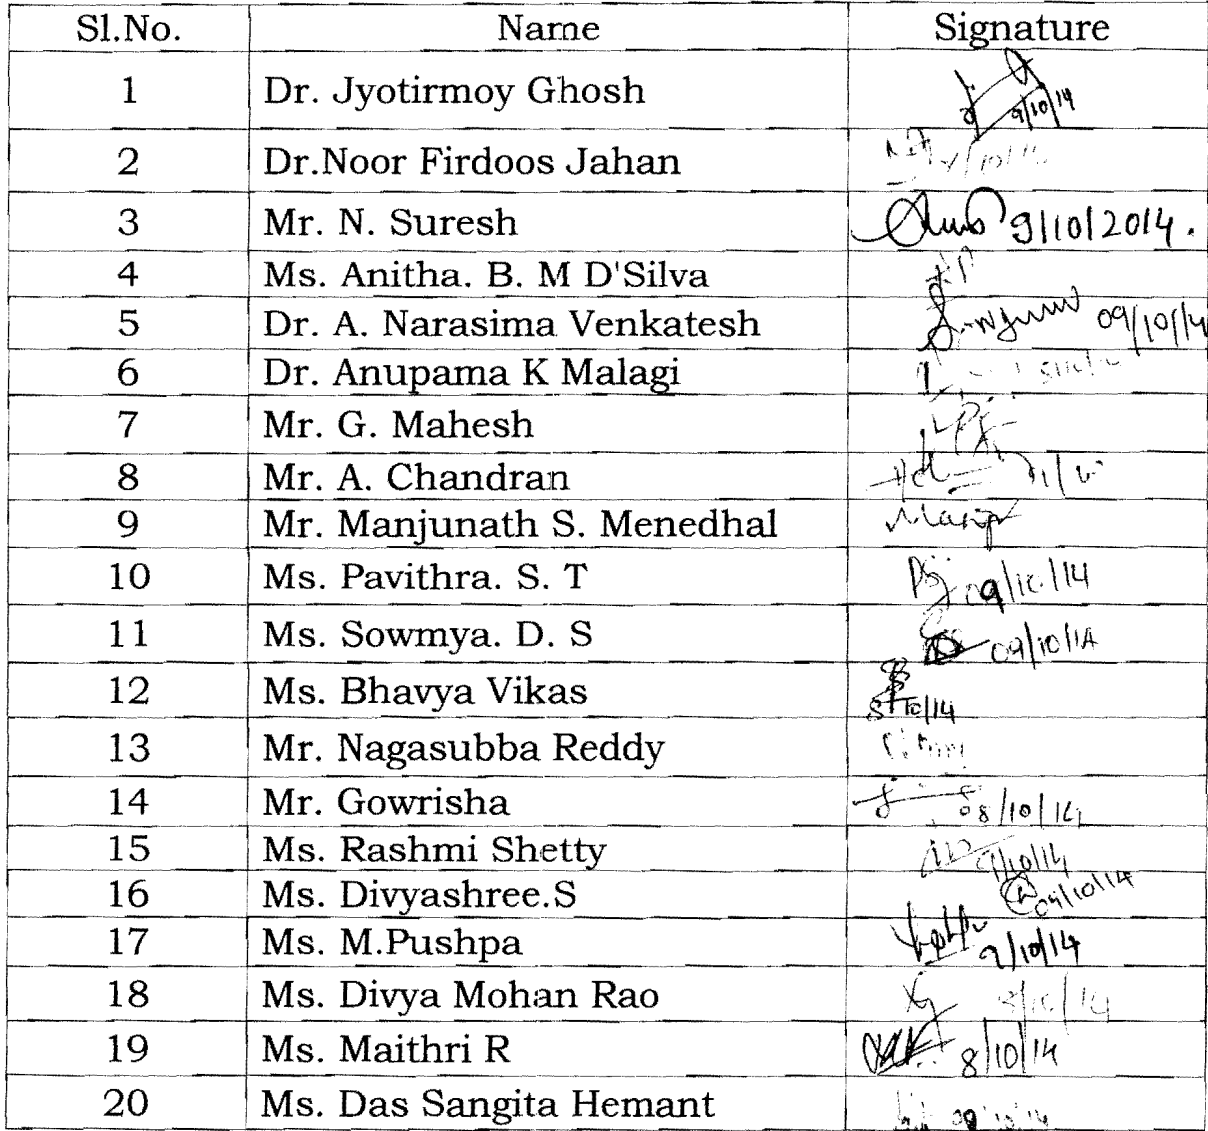 Sl.No. Name Signature
1 Dr. Jyotirmoy Ghosh 9/10/14
2 Dr.Noor Firdoos Jahan
3 Mr. N. Suresh 9/10/2014.
4 Ms. Anitha. B. M D'Silva
5 Dr. A. Narasima Venkatesh 09/10/14
6 Dr. Anupama K Malagi
7 Mr. G. Mahesh
8 Mr. A. Chandran
9 Mr. Manjunath S. Menedhal
10 Ms. Pavithra. S. T 09/10/14
11 Ms. Sowmya. D. S 09/10/14
12 Ms. Bhavya Vikas 8/10/14
13 Mr. Nagasubba Reddy
14 Mr. Gowrisha 08/10/14
15 Ms. Rashmi Shetty 9/10/14
16 Ms. Divyashree.S 09/10/14
17 Ms. M.Pushpa 9/10/14
18 Ms. Divya Mohan Rao 8/10/14
19 Ms. Maithri R 8/10/14
20 Ms. Das Sangita Hemant